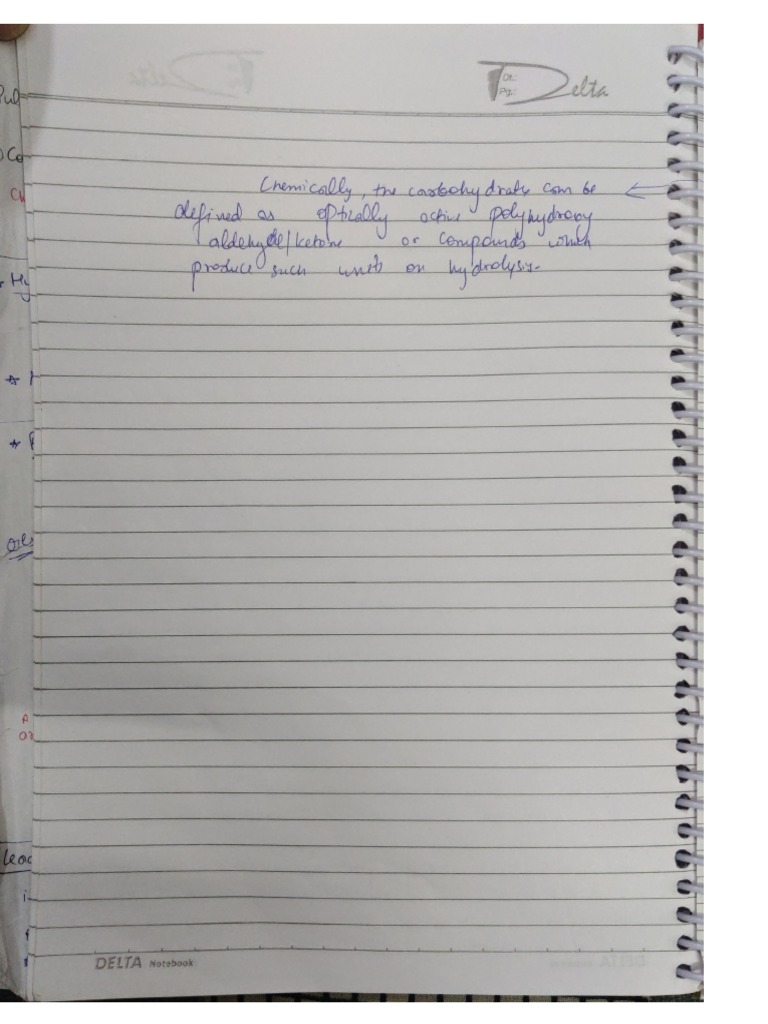 Dt.:
Pg.:
Delta
Chemically, the carbohydrate can be
defined as optically active polyhydroxy
aldehyde/ketone or compounds which
produce such units on hydrolysis.
DELTA Notebook